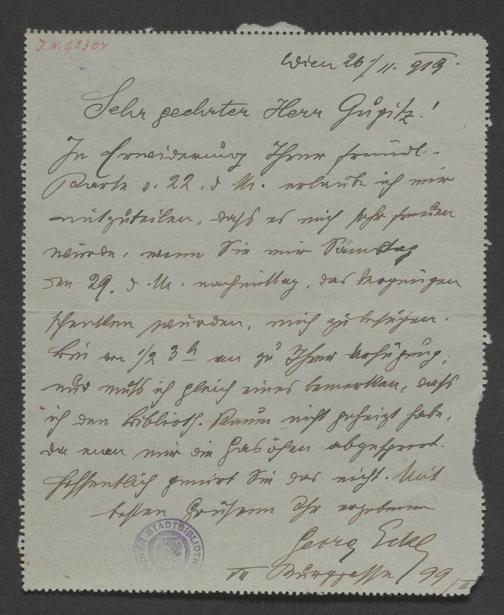 J.N. 92307
Wien 26/11. 919.
Sehr geehrter Herr Gugitz!
In Erwiderung Ihrer freundl.
Karte v. 22. d. M. erlaube ich mir
mitzuteilen, daſs es mich sehr freuen
würde, wenn Sie mir Samstag
den 29. d. M. nachmittag, das Vergnügen
schenken würden, mich zu besuchen.
Bin von 1/2 3 h an zu Ihrer Verfügung,
nur muſs ich gleich eines bemerken, daſs
ich den Biblioth. Raum nicht geheizt habe,
da man mir die Gasöfen abgesperrt.
Hoffentlich geniert Sie das nicht. Mit
besten Grüſsen Ihr ergebener
Georg Eckl
VII Burggasse 99
STADTBIBLIOTH